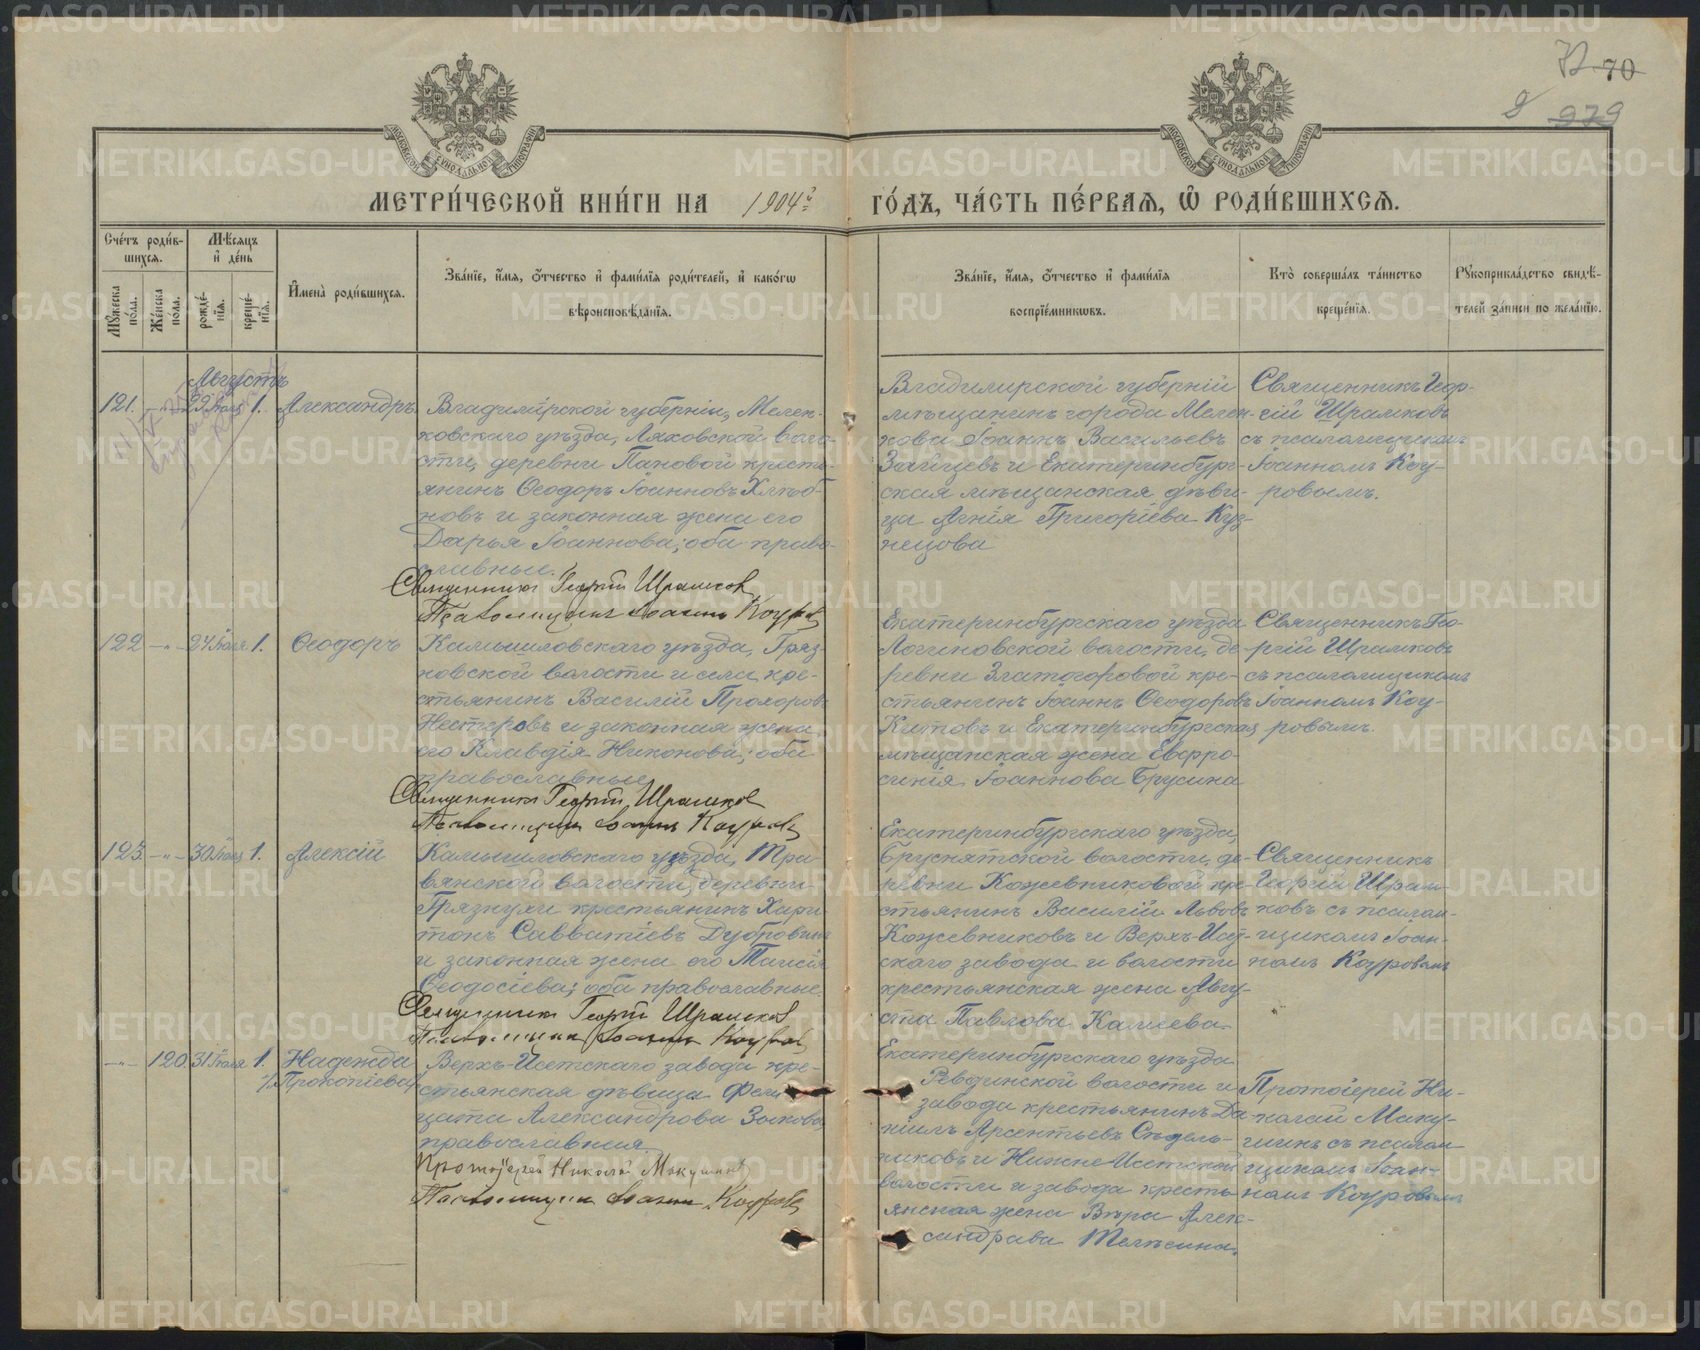 70
979
МОСКОВСКОЙ СѴНОДАЛЬНОЙ ТИПОГРАФІИ
МОСКОВСКОЙ СѴНОДАЛЬНОЙ ТИПОГРАФІИ
МЕТРИ́ЧЕСКОЙ КНИ́ГИ НА 1904й ГО́ДЪ, ЧА́СТЬ ПЕ́РВАѦ, Ѡ РОДИ́ВШИХСѦ.
Сче́тъ роди́в-
шихсѧ.
Мꙋ́жеска по́ла.
Же́нска по́ла.
Мѣ́сѧцъ и де́нь
рожде́-
нїѧ.
креще́-
нїѧ.
Имена̀ роди́вшихсѧ.
Зва́нїе, и́мѧ, о́тчество и фами́лїѧ роди́телей, и како́гѡ
вѣроисповѣ́данїѧ.
Зва́нїе, и́мѧ, о́тчество и фами́лїѧ
воспрїе́мникѡвъ.
Кто̀ соверша́лъ та́инство
креще́нїѧ.
Рꙋкоприкла́дство свидѣ́-
телей за́писи по жела́нїю.
Августъ
121. -"- 29 Іюля 1. Александръ
Владимірской губерніи, Мелен-
ковскаго уѣзда, Ляховской воло-
сти, деревни Пановой кресть-
янинъ Ѳеодоръ Іоанновъ Хлѣб-
новъ и законная жена его
Дарья Іоаннова; оба право-
славные.
Священникъ Георгій Шрамковъ
Псаломщикъ Іоаннъ Коуровъ
Владимирской губерніи
мѣщанинъ города Мелен-
кова Іоаннъ Васильевъ
Зайцевъ и Екатеринбург-
ская мѣщанская дѣви-
ца Агнія Григоріева Куз-
нецова
Священникъ Геор-
гій Шрамковъ
съ псаломщикомъ
Іоанномъ Коу-
ровымъ.
122 -"- 24 Іюля 1. Ѳеодоръ
Камышловскаго уѣзда, Гряз-
новской волости и села, кре-
стьянинъ Василій Прохоровъ
Нестеровъ и законная жена
его Клавдія Никонова; оба
православные
Священникъ Георгій Шрамковъ
Псаломщикъ Іоаннъ Коуровъ
Екатеринбургскаго уѣзда
Логиновской волости, де-
ревни Златогоровой кре-
стьянинъ Іоаннъ Ѳеодоровъ
Китовъ и Екатеринбургская
мѣщанская жена Евфро-
синія Іоаннова Брусина
Священникъ Гео-
ргій Шрамковъ
съ псаломщикомъ
Іоанномъ Коу-
ровымъ.
123. -"- 30 Іюля 1. Алексій
Камышловскаго уѣзда, Тра-
вянской волости, деревни
Грязнухи крестьянинъ Хари-
тонъ Савватіевъ Дубровинъ
и законная жена его Таисія
Ѳеодосіева; оба православные.
Священникъ Георгій Шрамковъ
Псаломщикъ Іоаннъ Коуровъ
Екатеринбургскаго уѣзда,
Бруснятской волости, де-
ревни Кожевниковой кре-
стьянинъ Василій Львовъ
Кожевниковъ и Верхъ-Исет-
скаго завода и волости
крестьянская жена Авгу-
ста Павлова Калиева
Священникъ
Георгій Шрам-
ковъ съ псалом-
щикомъ Іоан-
номъ Коуровымъ
-"- 120. 31 Іюля 1. Надежда
Прокопіева
Верхъ-Исетскаго завода кре-
стьянская дѣвица Фели-
цата Александрова Зыкова
православная
Протоіерей Николай Макушинъ
Псаломщикъ Іоаннъ Коуровъ
Екатеринбургскаго уѣзда
Ревдинской волости и
завода крестьянинъ Да-
ніилъ Арсентьевъ Сѣдель-
никовъ и Нижне-Исетской
волости и завода кресть-
янская жена Вѣра Алек-
сандрова Телѣсина.
Протоіерей Ни-
колай Маку-
шинъ съ псалом-
щикомъ Іоан-
номъ Коуровымъ
METRIKI.GASO-URAL.RU